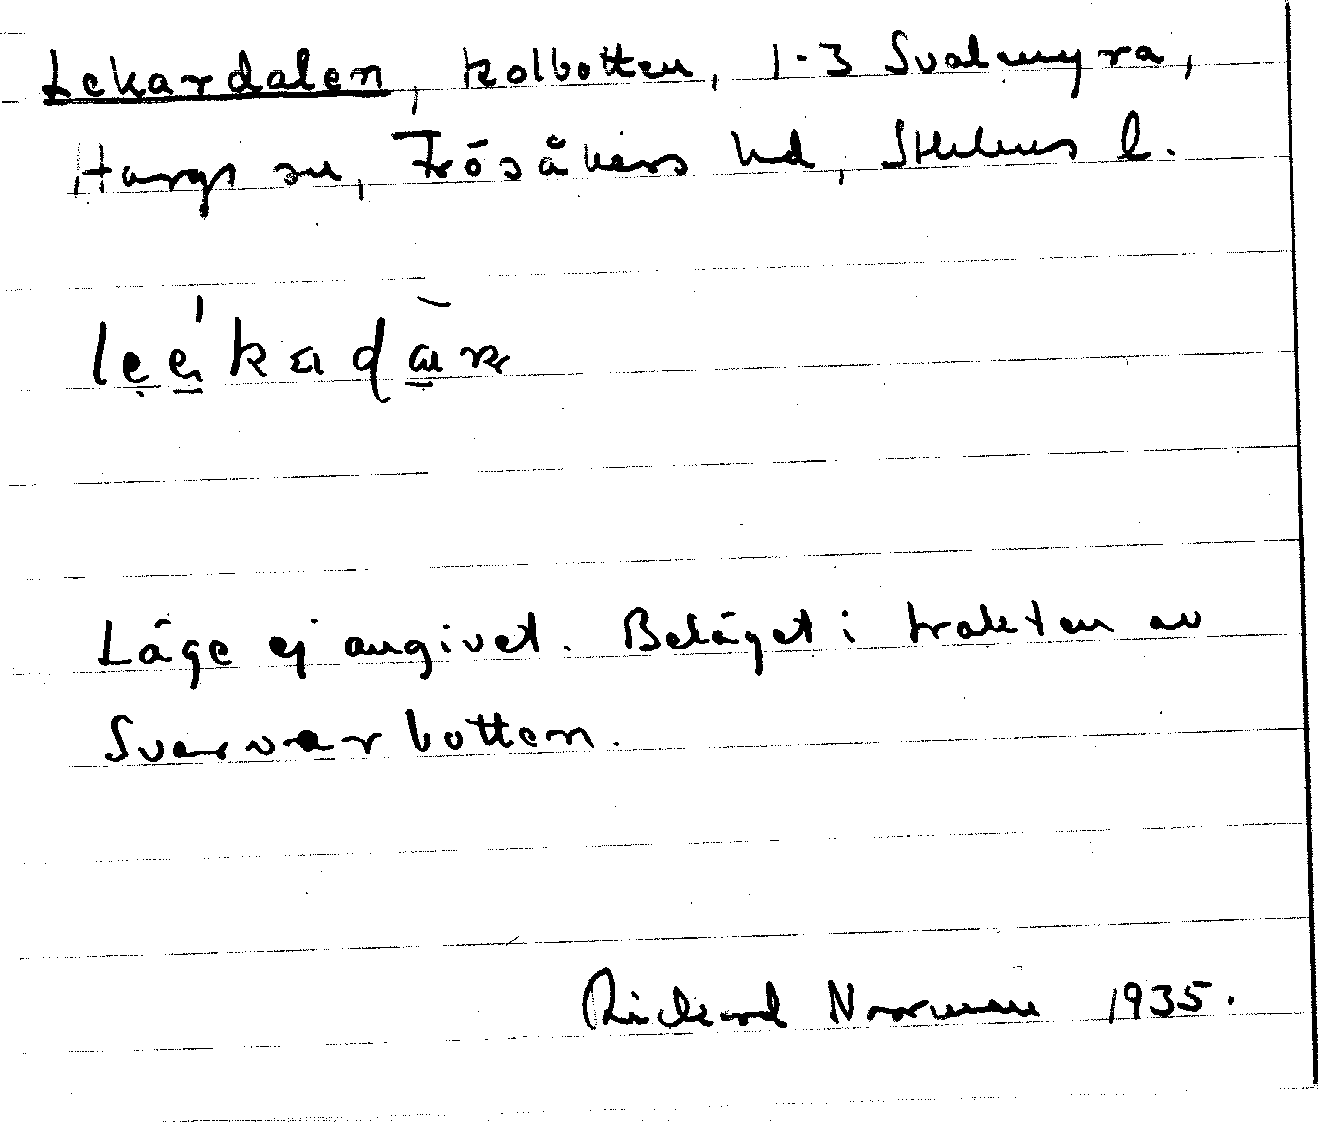 Lekardalen, kolbotten, 1-3 Svalmyra,
Hargs sn, Frösåkers hd, Sthlms l.
Läge ej angivet. Beläget i trakten av
Svarvarbotten.
Richard Norrman 1935.